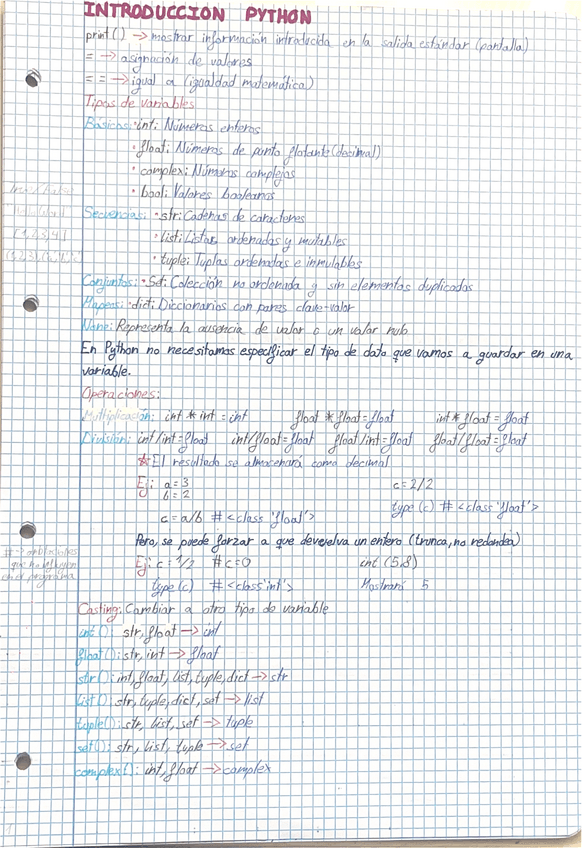 INTRODUCCION PYTHON
print() → mostrar información introducida en la salida estándar (pantalla)
= → asignación de valores
== → igual a (igualdad matemática)
Tipos de variables
Básicas: · int: Números enteros
· float: Números de punto flotante (decimal)
· complex: Números complejos
· bool: Valores booleanos
True / False
Secuencias: · str: Cadenas de caracteres
· list: Listas ordenadas y mutables
[1,2,3,4]
· tuple: Tuplas ordenadas e inmutables
Conjuntos: · Set: Colección no ordenada y sin elementos duplicados
Mapeos: · dict: Diccionarios con pares clave-valor
None: Representa la ausencia de valor o un valor nulo
En Python no necesitamos especificar el tipo de data que vamos a guardar en una
variable.
Operaciones:
Multiplicación: int * int = int float * float = float int * float = float
División: int/int = float int/float = float float/int = float float/float = float
* El resultado se almacenará como decimal
Ej: a = 3 c = 2/2
b = 2
type (c) # <class 'float'>
c = a/b # <class 'float'>
Pero, se puede forzar a que devuelva un entero (trunca, no redondea)
Ej: c = 1/2 # c = 0 int (5,8)
type(c) # <class 'int'> Mostrará 5
que no influyen
en el programa
Casting: Cambiar a otro tipo de variable
int(): str, float → int
float(): str, int → float
str(): int, float, list, tuple, dict → str
list(): str, tuple, dict, set → list
tuple(): str, list, set → tuple
set(): str, list, tuple → set
complex(): int, float → complex